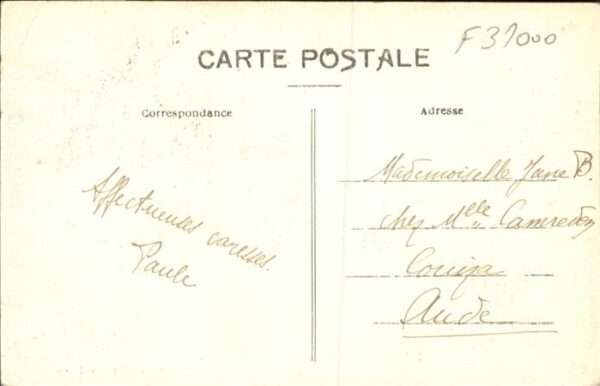 F37000
CARTE POSTALE
Correspondance
Adresse
Affectueuses caresses.
Paule
Mademoiselle Jane B.
chez Mlle
Couiza
Aude